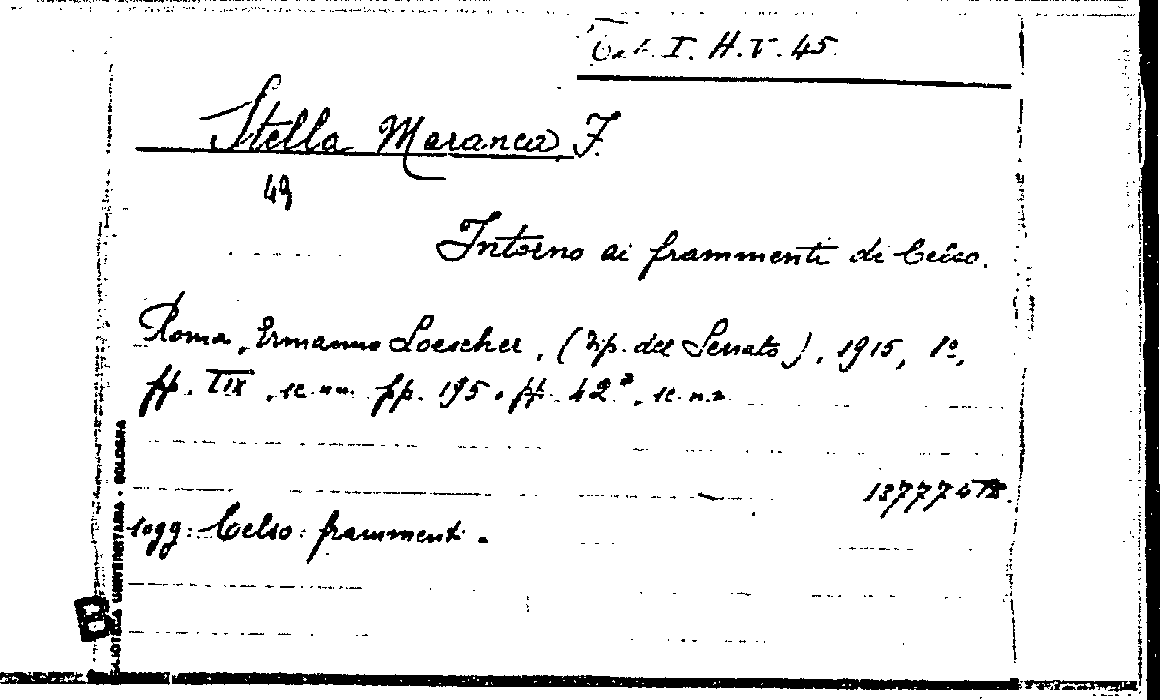 Tab. I. H. V. 45.
Stella Maranca, F.
49
Intorno ai frammenti di Celso.
Roma, Ermanno Loescher, (Tip. del Senato), 1915, 1º,
pp. LIX, 1c. nn. pp. 195. pp. 42ª, 1c. n.n
sogg: Celso: frammenti.
BIBLIOTECA UNIVERSITARIA - BOLOGNA